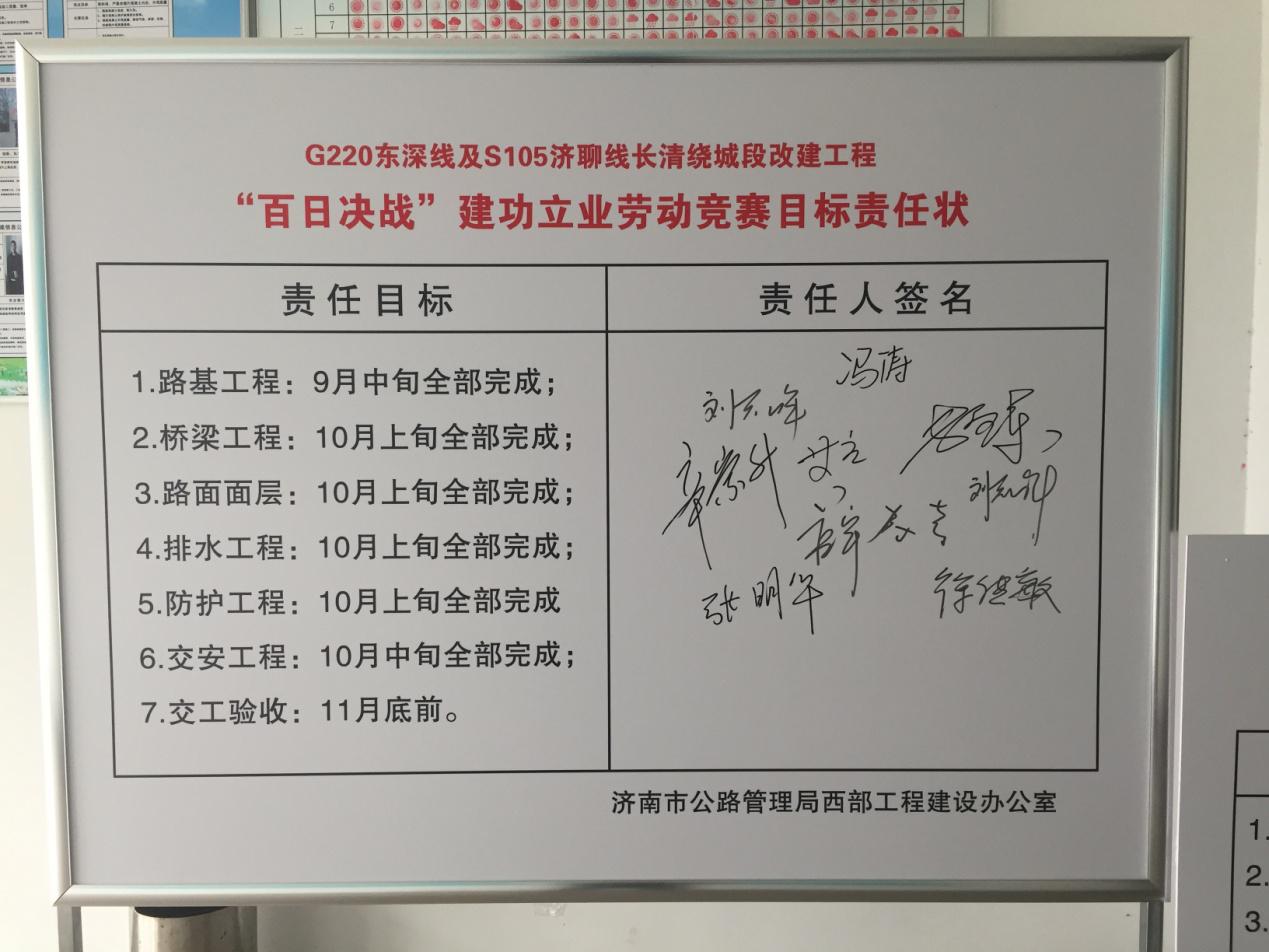 6
7
G220东深线及S105济聊线长清绕城段改建工程
“百日决战”建功立业劳动竞赛目标责任状
责任目标
责任人签名
1.路基工程：9月中旬全部完成；
2.桥梁工程：10月上旬全部完成；
3.路面面层：10月上旬全部完成；
4.排水工程：10月上旬全部完成；
5.防护工程：10月上旬全部完成
6.交安工程：10月中旬全部完成；
7.交工验收：11月底前。
冯涛
张明华
济南市公路管理局西部工程建设办公室
1.
2.
3.